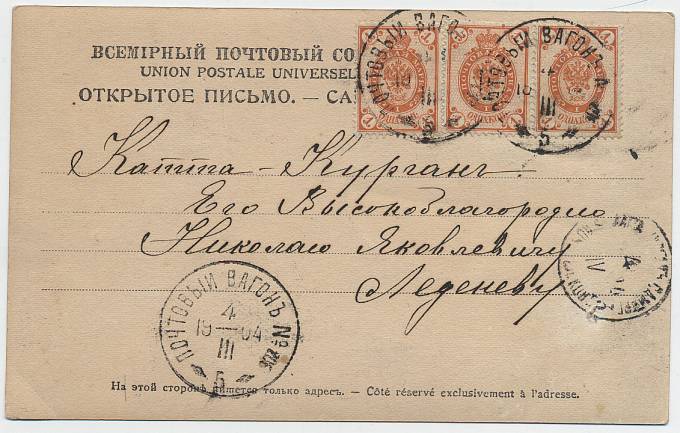 ВСЕМІРНЫЙ ПОЧТОВЫЙ
UNION POSTALE UNIVERSELLE
ОТКРЫТОЕ ПИСЬМО. —
ПОЧТОВЫЙ ВАГОНЪ
4
19
III
5
ПОЧТОВЫЙ ВАГОНЪ
4
19
III
5
Катта-Курганъ
Его Высокоблагородію
Николаю Яковлевичу
Леденеву
ПОЧТОВЫЙ ВАГОНЪ №
4
19 — 04
III
5
4
IV
На этой сторонѣ пишется только адресъ. — Côté réservé exclusivement à l'adresse.